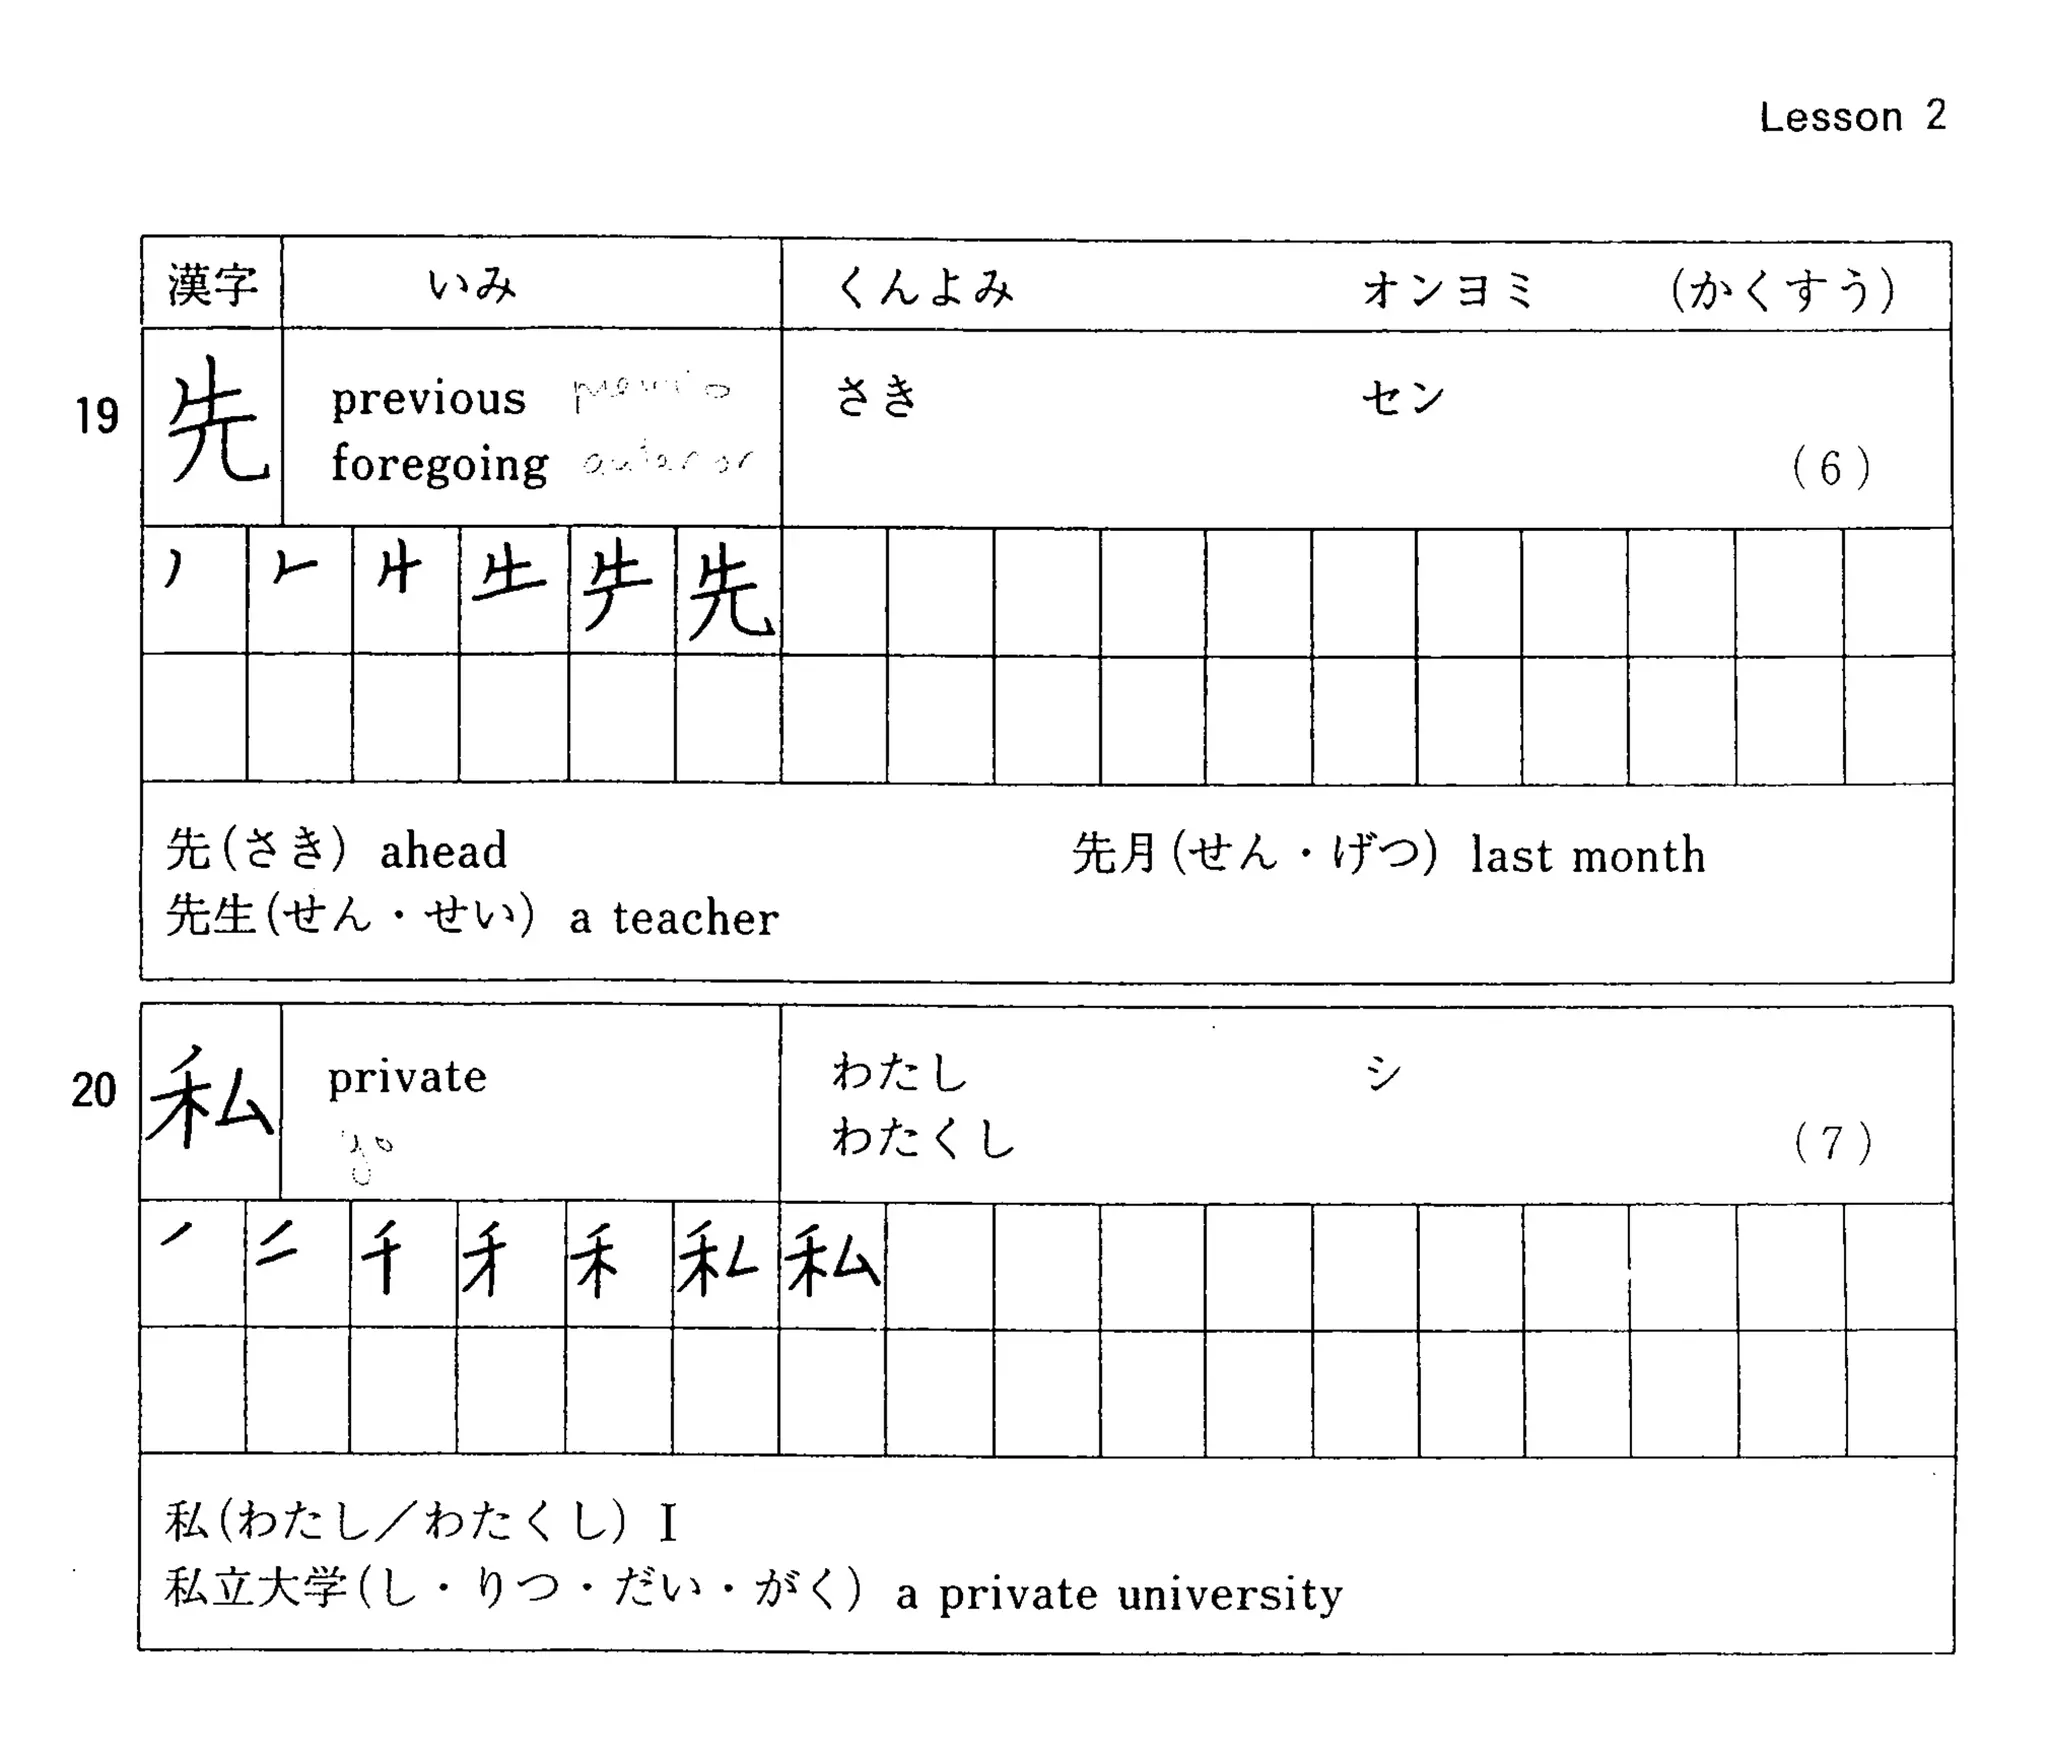 Lesson 2
漢字 いみ くんよみ オンヨミ (かくすう)
19 先 previous previo さき セン
foregoing anterior (6)
先
先(さき) ahead 先月(せん・げつ) last month
先生(せん・せい) a teacher
20 私 private わたし シ
yo わたくし (7)
千 禾 私
私(わたし／わたくし) I
私立大学(し・りつ・だい・がく) a private university